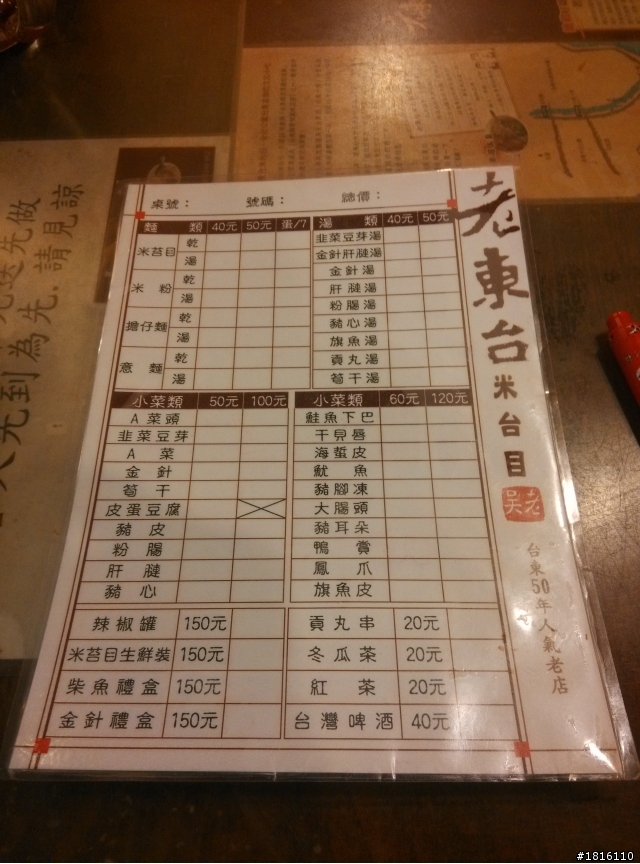 桌號： 號碼： 總價：
麵 類 40元 50元 蛋/7
米苔目 乾
湯
米 粉 乾
湯
擔仔麵 乾
湯
意 麵 乾
湯
湯 類 40元 50元
韭菜豆芽湯
金針肝腱湯
金針湯
肝腱湯
粉腸湯
豬心湯
旗魚湯
貢丸湯
筍干湯
小菜類 50元 100元
A菜頭
韭菜豆芽
A 菜
金 針
筍 干
皮蛋豆腐
豬 皮
粉 腸
肝 腱
豬 心
小菜類 60元 120元
鮭魚下巴
干貝唇
海蜇皮
魷 魚
豬腳凍
大腸頭
豬耳朵
鴨 賞
鳳 爪
旗魚皮
辣椒罐 150元
米苔目生鮮裝 150元
柴魚禮盒 150元
金針禮盒 150元
貢丸串 20元
冬瓜茶 20元
紅 茶 20元
台灣啤酒 40元
老東台
米台目
老吳
台東50年人氣老店
先送先做
先到為先.請見諒
#1816110